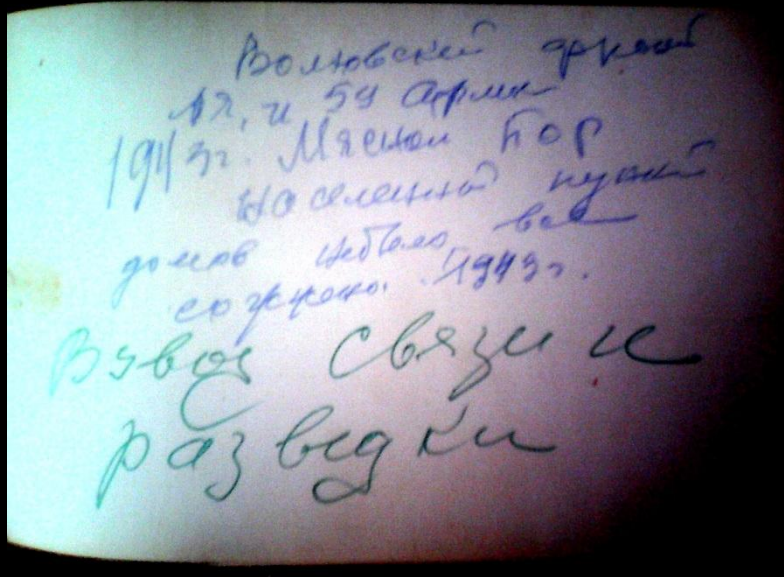 Волховский фронт
и 59 Армии
1943г. Мясной Бор
населенный пункт
домов небыло все
сожжено. 1943г.
Взвод связи и
разведки